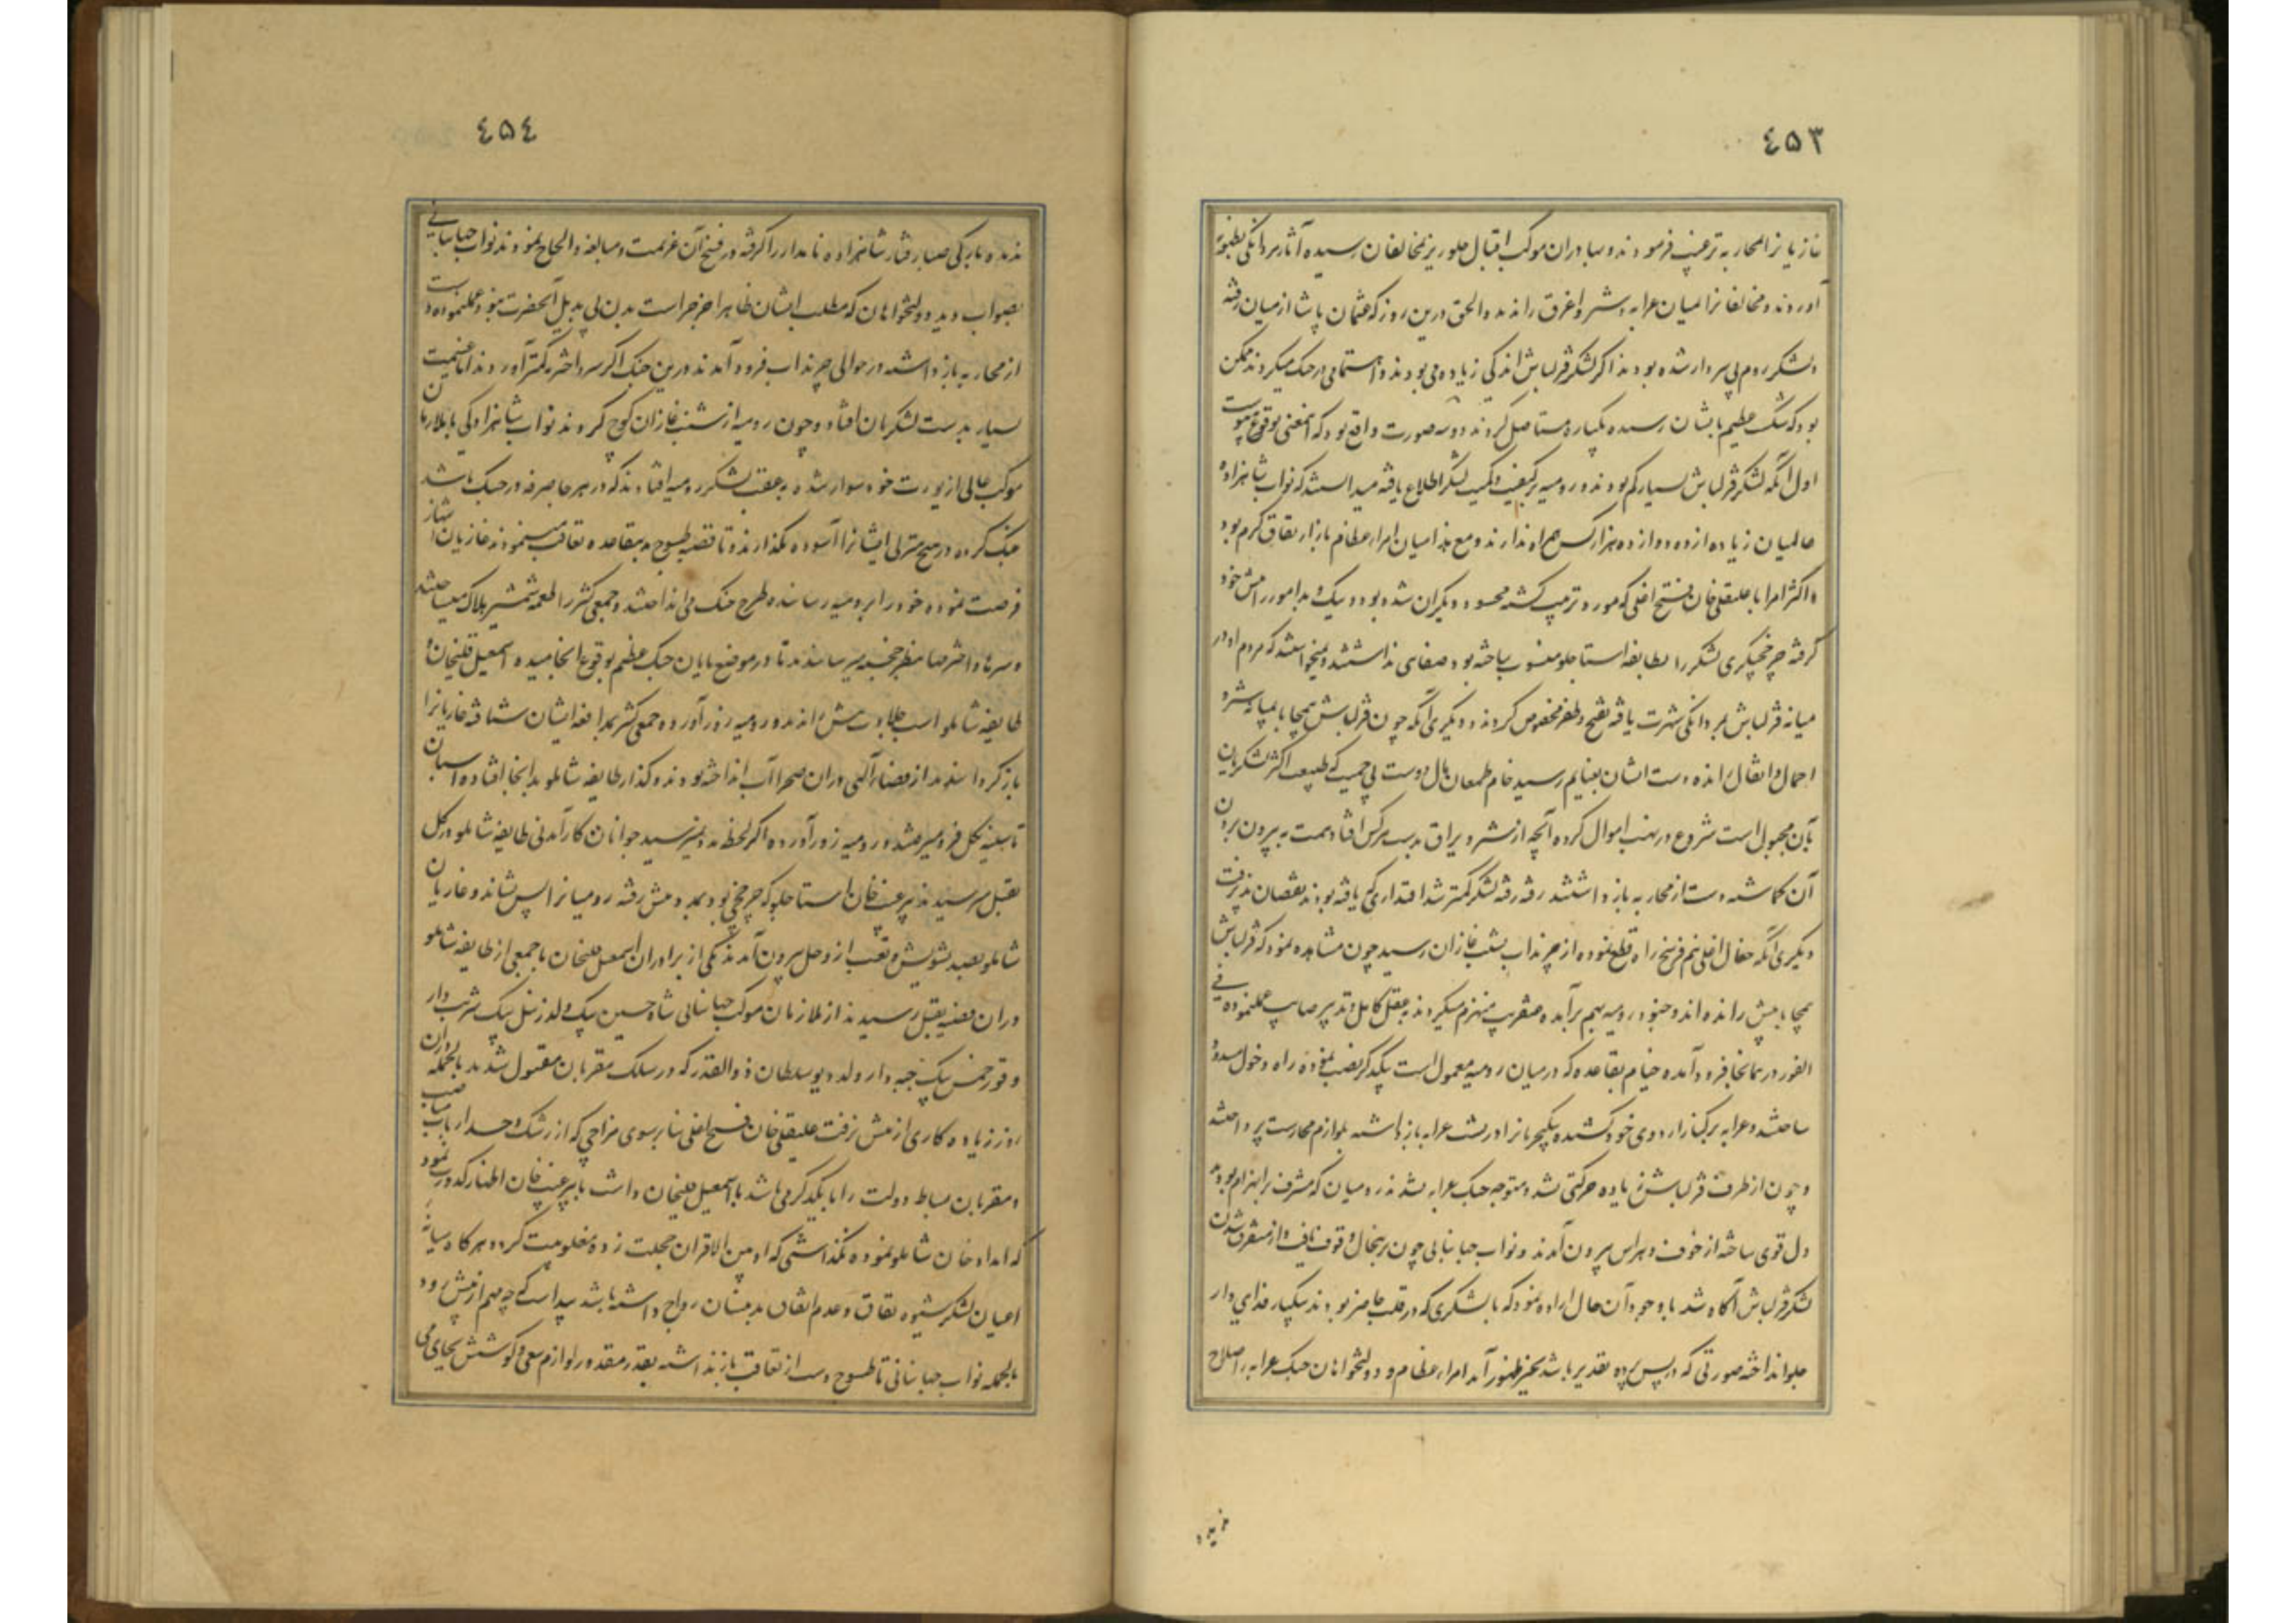 ٤٥٣
غازیانرا بمحاربه ترغیب فرمودند و بهادران موکب اقبال جلوریز بمخالفان رسیده آثار مردانگی بظهور
آوردند و مخالفانرا بمیان عرابه و شتر و اغرق راندند والحق درین روز که عثمان پاشا از میان رفته
و لشکر روم بی سردار شده بودند اگر لشکر قزلباش اندکی زیاده می بودند و اهتمامی در جنگ میکردند ممکن
بود که شکست عظیم بایشان رسیده یکباره مستاصل گردند دو سه صورت واقع بود که اینمعنی بوقوع نپیوست
اول آنکه لشکر قزلباش بسیار کم بودند و رومیه بر کیفیت و کمیت لشکر اطلاع یافته میدانستند که نواب شاهزاده
عالمیان زیاده از ده دوازده هزار کس همراه ندارند و مع هذا میان امراء عظام بازار نفاق گرم بود
و اکثر امرا با علیقلی خان فتح اغلی که مورد تربیت گشته محسود دیگران شده بود و نیک و بد امور را پیش خود
گرفته چرخچیگری لشکر را بطایفه استاجلو منسوب ساخته بود صفای نداشتند و نمیخواستند که مردم او در
میانه قزلباش بمردانگی شهرت یافته بفتح و ظفر مخصوص گردند و دیگری آنکه چون قزلباش بیمحابا بمیانه شتر و
احمال و اثقال رانده دست ایشان بغنایم رسید خام طمعان مال دوست بی حمیت که طبیعت اکثر لشکریان
بآن مجبول است شروع در نهب اموال کرده آنچه از شتر و یراق بدست هر کس افتاد همت به بیرون بردن
آن گماشته دست از محاربه باز داشتند رفته رفته لشکر کمتر شد اقتداری که یافته بودند نقصان پذیرفت
دیگری آنکه جغال اغلی نیم فرسخ راه قطع نموده از چرنداب بشنب غازان رسید چون مشاهده نمود که قزلباش
بیمحابا پیش رانده اند و جنود رومیه بهم برآمده عنقریب منهزم میگردند بعقل کامل و تدبیر صایب عملنموده فی
الفور در همانجا فرود آمده خیام بقاعده که در میان رومیه معمول است بیکدیگر نصب نموده راه دخول مسدود
ساختند و عرابه بر کنار اردوی خود کشیده ینگچریانرا در پشت عرابه باز داشته بلوازم محارست پرداختند
و چون از طرف قزلباش زیاده حرکتی نشد و متوجه جنگ عرابه نشدند رومیان که مشرف بر انهزام بودند
دل قوی ساخته از خوف و هراس بیرون آمدند و نواب جهانبانی چون برینحال وقوف یافت و از متفرق شدن
لشکر قزلباش آگاه شد با وجود آن حال اراده نمود که با لشکری که در قلب حاضر بودند بیکبار فدایی وار
جلو انداخته صورتی که در پس پرده تقدیر باشد بحیز ظهور آید امراء عظام و دولتخواهان جنگ عرابه را صلاح
ندیده
٤٥٤
ندیده بارکی صبا رفتار شاهزاده نامدار را گرفته در فسخ آن عزیمت و مبالغه و الحاح نمودند نواب جهانبانی
بصواب دید دولتخواهان که مطلب ایشان ظاهرا حرز حراست بدن بی بدیل آنحضرت بود عملنموده دست
از محاربه باز داشته در حوالی چرنداب فرود آمدند درین جنگ اگر سر و اخترمه کمتر آوردند اما غنیمت
بسیار بدست لشکریان افتاد و چون رومیه از شنب غازان کوچ کردند نواب شاهزادگی با ملازمان
موکب عالی از یورت خود سوار شده به عقب لشکر رومیه افتادند که در هر جا صرفه در جنگ باشد
جنگ کرده در هیچ منزلی ایشانرا آسوده نگذارند و تا قصبه طسوج بدینقاعده تعاقب مینمودند غازیان انتهاز
فرصت نموده خود را برومیه رسانده طرح جنگ می انداختند و جمعی کثیر را طعمه شمشیر هلاک میساختند
و سرها و اخترمها بنظر خجسته میرسانیدند تا در موضع پایان جنگ عظیم بوقوع انجامیده اسمعیل قلیخان و
طایفه شاملو اسب جلادت پیش راندند و رومیه زور آورده جمعی کثیر بمدافعه ایشان شتافته غازیانرا
باز گردانیدند از قضاء الهی در آن صحرا آب انداخته بودند و گذار طایفه شاملو بدانجا افتاده اسبان
تا سینه بگل فرو میرفتند و رومیه زور آورده اگر لحظه مدد نمیرسید جوانان کارآمدنی طایفه شاملو در گل
بقتل میرسیدند پیر غیب خان استاجلو که چرخچی بود بمدد پیش رفته رومیانرا پس نشاند و غازیان
شاملو بصد تشویش و تعب از وحل بیرون آمدند یکی از برادران اسمعیل قلیخان با جمعی از طایفه شاملو
در آن قضیه بقتل رسیدند از ملازمان موکب جهانبانی شاه حسین بیک ولد زینل بیک شربت دار
و قورخمس بیک جبه دار ولد دیو سلطان ذوالقدر که در سلک مقربان مقتول شدند بالجمله در آن
روز زیاده کاری از پیش نرفت علیقلی خان فتح اغلی بنا بر سوی مزاجی که از رشک و حسد ارباب مناصب
و مقربان بساط دولت را با یکدیگر می باشد با اسمعیل قلیخان داشت با پیر غیب خان اظهار کدورت نمود
که امداد خان شاملو نموده نگذاشتی که او بین الاقران خجلت زده مغلوبیت گردد هر گاه میانه
اعیان لشکر شیوه نفاق و عدم اتفاق بدینسان رواج داشته باشد پیداست که چه مهم از پیش رود
بالجمله نواب جهانبانی تا طسوج دست از تعاقب باز نداشته بقدر مقدور لوازم سعی و کوشش بجای می